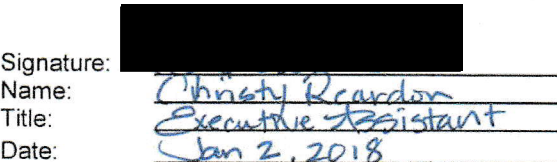 Signature:
Name: Christy Reardon
Title: Executive Assistant
Date: Jan 2, 2018